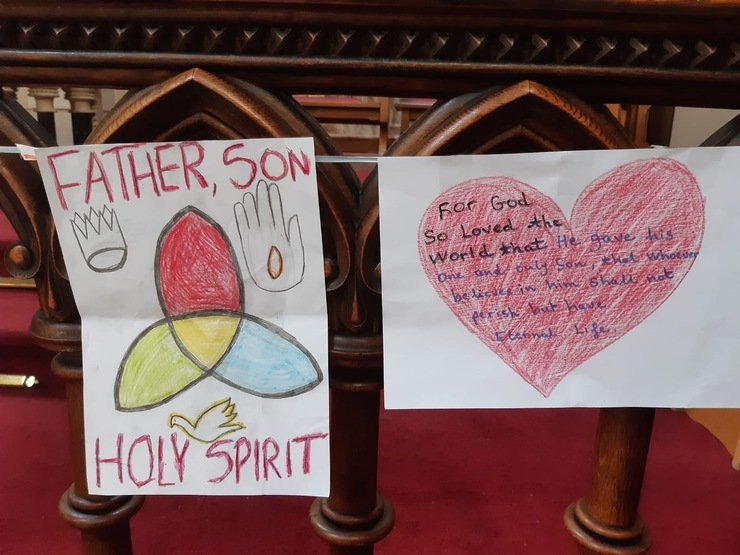 FATHER, SON
HOLY SPIRIT
For God
So Loved the
World that He gave his
one and only Son, that Whoever
believes in him shall not
perish but have
Eternal Life.